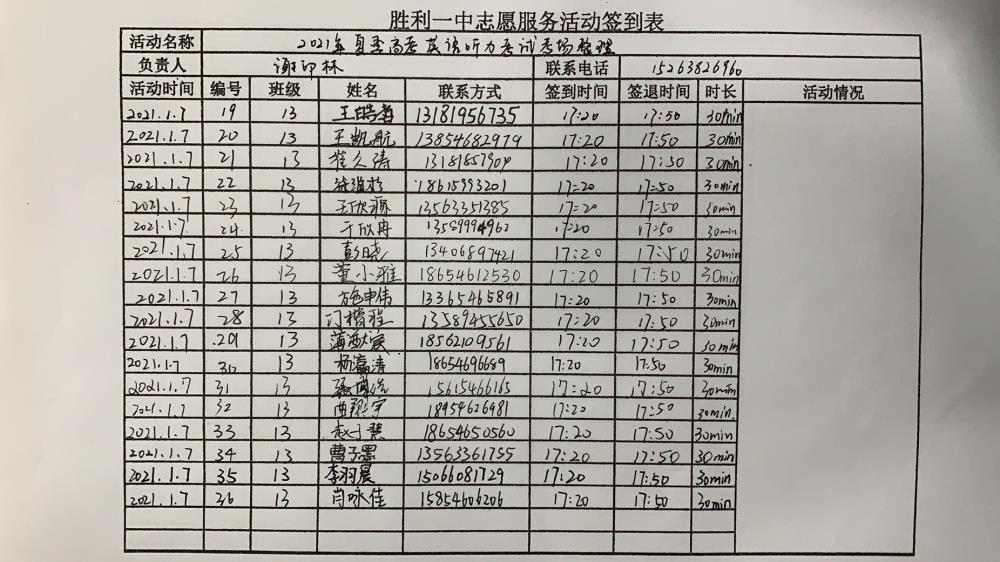 胜利一中志愿服务活动签到表
活动名称 2021年夏季高考英语听力考试考场整理
负责人 谢印林 联系电话 15263826960
活动时间 编号 班级 姓名 联系方式 签到时间 签退时间 时长 活动情况
2021.1.7 19 13 王皓哲 13181956735 17:20 17:50 30min
2021.1.7 20 13 王凯航 13854682979 17:20 17:50 30min
2021.1.7 21 13 崔久涛 13181857904 17:20 17:50 30min
2021.1.7 22 13 18615993201 17:20 17:50 30min
2021.1.7 23 13 王欣源 13563351385 17:20 17:50 30min
2021.1.7 24 13 于欣冉 13589994962 17:20 17:50 30min
2021.1.7 25 13 彭晓 13406897421 17:20 17:50 30min
2021.1.7 26 13 董小雅 18654612530 17:20 17:50 30min
2021.1.7 27 13 施申伟 13365465891 17:20 17:50 30min
2021.1.7 28 13 门楷程 13589455650 17:20 17:50 30min
2021.1.7 29 13 18562109561 17:20 17:50 30min
2021.1.7 30 13 杨瀛清 18654696689 17:20 17:50 30min
2021.1.7 31 13 15615466165 17:20 17:50 30min
2021.1.7 32 13 曲翔宇 18954626981 17:20 17:50 30min.
2021.1.7 33 13 赵小慧 18654650560 17:20 17:50 30min
2021.1.7 34 13 曹子墨 13563361755 17:20 17:50 30min
2021.1.7 35 13 李羽晨 15066081729 17:20 17:50 30min
2021.1.7 36 13 肖咏佳 15854606206 17:20 17:50 30min